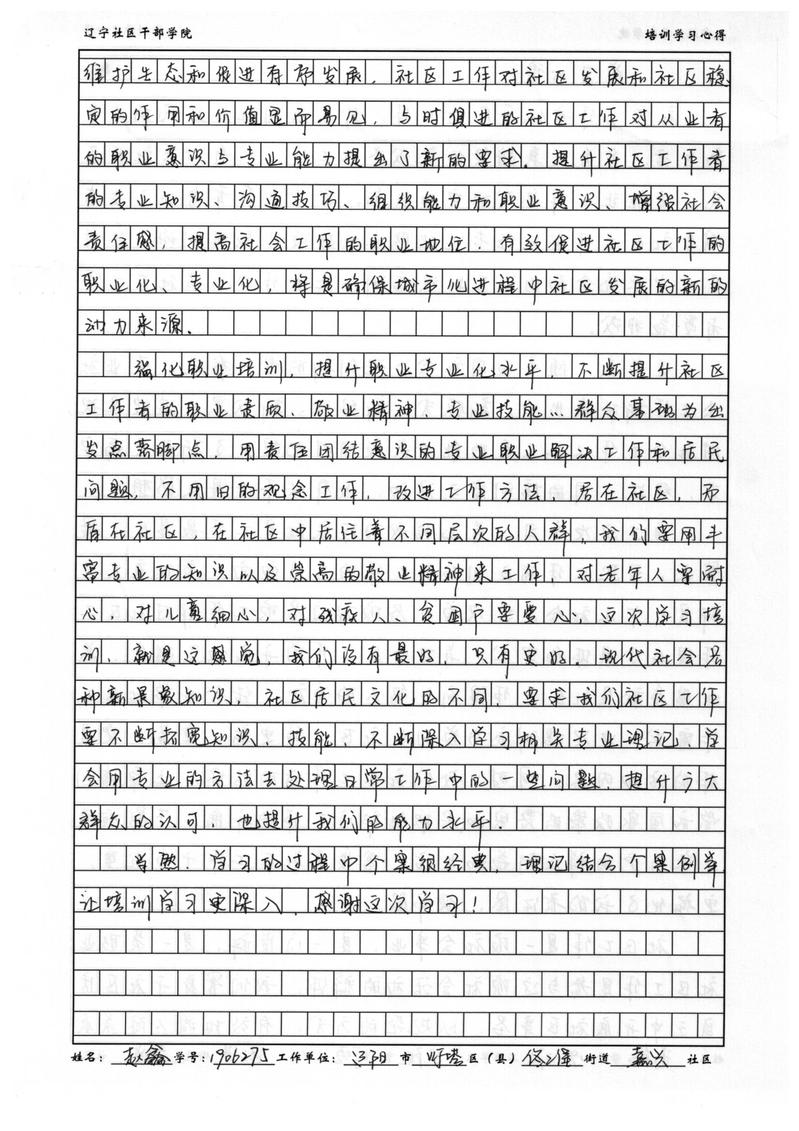 辽宁社区干部学院 培训学习心得
维护生态和促进有序发展，社区工作对社区发展和社区稳
定的作用和价值显而易见，与时俱进的社区工作对从业者
的职业意识与专业能力提出了新的要求。提升社区工作者
的专业知识、沟通技巧、组织能力和职业意识、增强社会
责任感，提高社会工作的职业地位，有效促进社区工作的
职业化、专业化，将是确保城市化进程中社区发展的新的
动力来源。
强化职业培训，提升职业专业化水平，不断提升社区
工作者的职业责欣、敬业精神、专业技能…群众基础为出
发点落脚点，用责任团结意识的专业职业解决工作和居民
问题，不用旧的观念工作，改进工作方法。居在社区，而
居在社区，在社区中居住着不同层次的人群，我们要用丰
富专业的知识以及崇高的敬业精神来工作，对老年人要耐
心，对儿童细心，对残疾人、贫困户要爱心，这次学习培
训，就是这感觉，我们没有最好，只有更好，现代社会各
种新景象知识，社区居民文化的不同，要求我们社区工作
要不断拓宽知识、技能、不断深入学习相关专业理记、学
会用专业的方法去处理日常工作中的一些问题，提升广大
群众的认可，也提升我们的能力水平。
当然，学习的过程中个案很经典，理记结合个案例举
让培训学习更深入，感谢这次学习！
姓名：赵鑫 学号：1906275 工作单位：辽阳 市 灯塔 区（县） 佟二堡 街道 嘉兴 社区